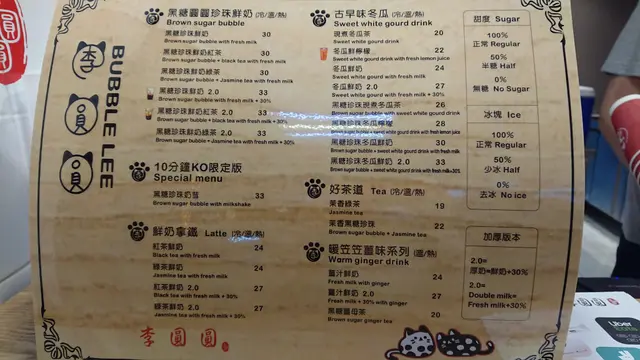 圓
圓
李
員
BUBBLE LEE
黑糖圓圓珍珠鮮奶 (冷/溫/熱)
Brown sugar bubble
黑糖珍珠鮮奶 30
Brown sugar bubble with fresh milk
黑糖珍珠鮮奶紅茶 30
Brown sugar bubble + black tea with fresh milk
黑糖珍珠鮮奶綠茶 30
Brown sugar bubble + Jasmine tea with fresh milk
黑糖珍珠鮮奶 2.0 33
Brown sugar bubble with fresh milk + 30%
黑糖珍珠鮮奶紅茶 2.0 33
Brown sugar bubble + black tea with fresh milk + 30%
黑糖珍珠鮮奶綠茶 2.0 33
Brown sugar bubble + Jasmine tea with fresh milk + 30%
10分鐘KO限定版
Special menu
黑糖珍珠奶蓋 33
Brown sugar bubble with milkshake
鮮奶拿鐵 Latte (冷/溫/熱)
紅茶鮮奶 24
Black tea with fresh milk
綠茶鮮奶 24
Jasmine tea with fresh milk
紅茶鮮奶 2.0 27
Black tea with fresh milk + 30%
綠茶鮮奶 2.0 27
Jasmine tea with fresh milk + 30%
李圓圓
古早味冬瓜 (冷/溫/熱)
Sweet white gourd drink
現煮冬瓜茶 20
Sweet white gourd drink
冬瓜鮮檸檬 22
Sweet white gourd drink with fresh lemon juice
冬瓜鮮奶 24
Sweet white gourd drink with fresh milk
冬瓜鮮奶 2.0 27
Sweet white gourd drink with fresh milk + 30%
黑糖珍珠現煮冬瓜茶 26
Brown sugar bubble + sweet white gourd drink
黑糖珍珠冬瓜檸檬 28
Brown sugar bubble + sweet white gourd drink with fresh lemon juice
黑糖珍珠冬瓜鮮奶 30
Brown sugar bubble + sweet white gourd drink with fresh milk
黑糖珍珠冬瓜鮮奶 2.0 33
Brown sugar bubble + sweet white gourd drink with fresh milk+30%
好茶道 Tea (冷/溫/熱)
茉香綠茶 19
Jasmine tea
茉香黑糖珍珠 22
Brown sugar bubble + Jasmine tea
暖笠笠薑味系列 (溫/熱)
Warm ginger drink
薑汁鮮奶 24
Fresh milk with ginger
薑汁鮮奶 2.0 27
Fresh milk + 30% with ginger
黑糖薑母茶 20
Brown sugar ginger tea
甜度 Sugar
100%
正常 Regular
50%
半糖 Half
0%
無糖 No Sugar
冰塊 Ice
100%
正常 Regular
50%
少冰 Half
0%
去冰 No ice
加厚版本
2.0=
厚奶=鮮奶+30%
2.0=
Double milk=
Fresh milk+30%
Uber